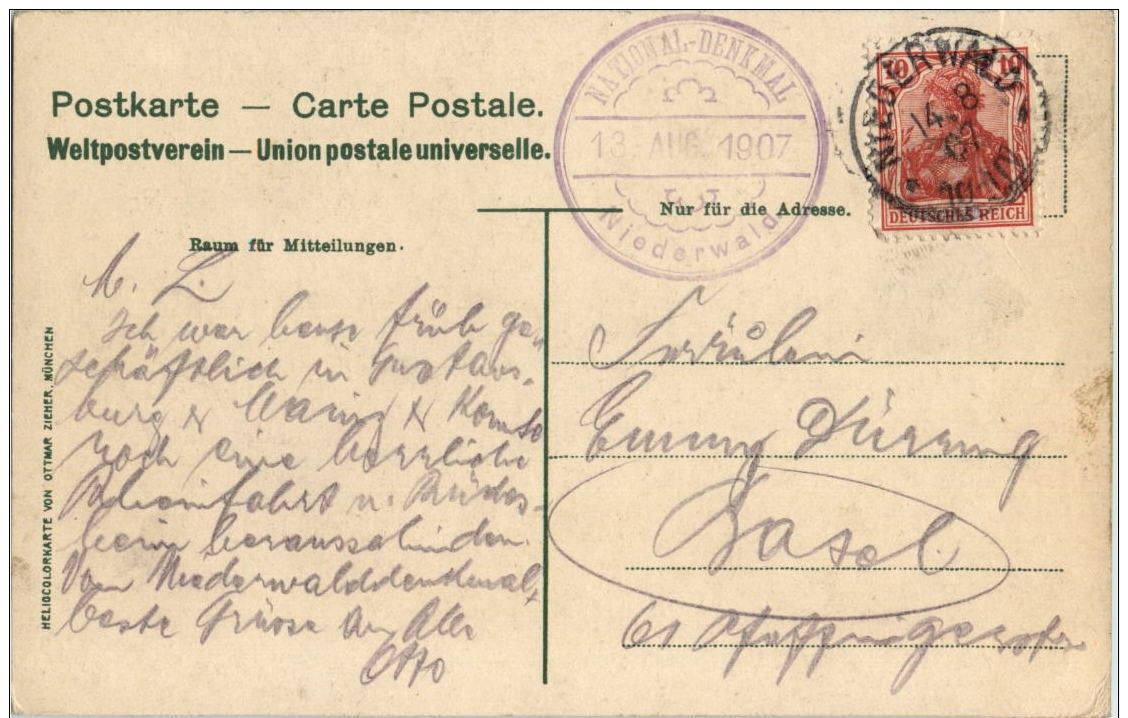 Postkarte — Carte Postale.
Weltpostverein — Union postale universelle.
NATIONAL-DENKMAL
13 AUG. 1907
Niederwald
NIEDERWALD
14. 8
07
10 10
DEUTSCHES REICH
Nur für die Adresse.
Raum für Mitteilungen.
M. L.
Ich war heute früh ge-
schäftlich in Gustavs-
burg & Mainz & konnte
noch eine herrliche
Rheinfahrt n. Rüdes-
heim herausschinden.
Vom Niederwalddenkmal
beste Grüsse an Alle
Otto
Fräulein
Emmy Dürring
Basel
61 Pfeffingerstr
HELIOCOLORKARTE VON OTTMAR ZIEHER, MÜNCHEN